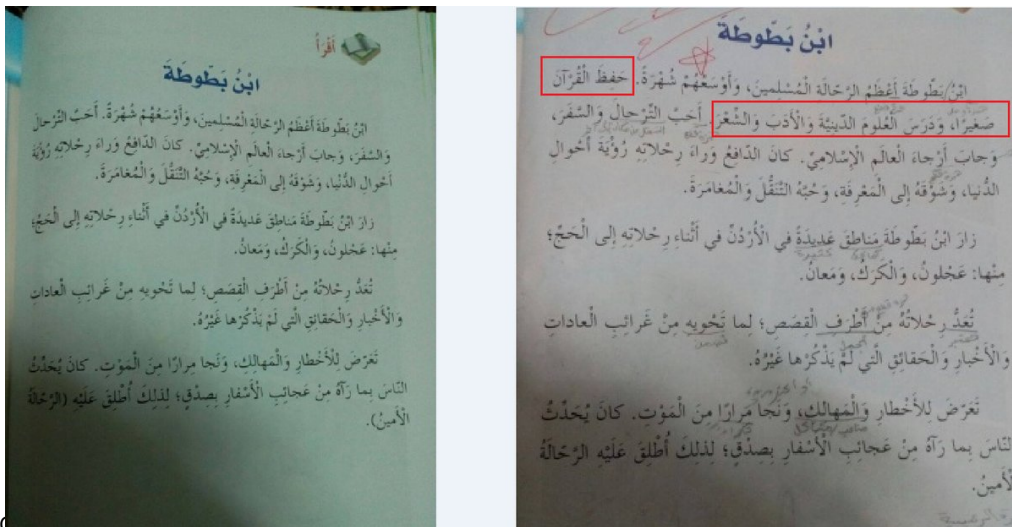 اَقْرَأُ
ابْنُ بَطّوطَةَ
ابْنُ بَطّوطَةَ أَعْظَمُ الرَّحّالَةِ الْمُسْلِمينَ، وَأَوْسَعُهُمْ شُهْرَةً. أَحَبَّ التَّرْحالَ
وَالسَّفَرَ، وَجابَ أَرْجاءَ الْعالَمِ الْإِسْلامِيِّ. كانَ الدّافِعُ وَراءَ رِحْلاتِهِ رُؤْيَةَ
أَحْوالِ الدُّنْيا، وَشَوْقَهُ إِلى الْمَعْرِفَةِ، وَحُبَّهُ التَّنَقُّلَ وَالْمُغامَرَةَ.
زارَ ابْنُ بَطّوطَةَ مَناطِقَ عَديدَةً في الْأُرْدُنِّ في أَثْناءِ رِحْلاتِهِ إِلى الْحَجِّ؛
مِنْها: عَجْلونُ، وَالْكَرَكُ، وَمَعانُ.
تُعَدُّ رِحْلاتُهُ مِنْ أَطْرَفِ الْقِصَصِ؛ لِما تَحْويهِ مِنْ غَرائِبِ الْعاداتِ
وَالْأَخْبارِ وَالْحَقائِقِ الَّتي لَمْ يَذْكُرْها غَيْرُهُ.
تَعَرَّضَ لِلْأَخْطارِ وَالْمَهالِكِ، وَنَجا مِرارًا مِنَ الْمَوْتِ. كانَ يُحَدِّثُ
النّاسَ بِما رَآهُ مِنْ عَجائِبِ الْأَسْفارِ بِصِدْقٍ؛ لِذلِكَ أُطْلِقَ عَلَيْهِ (الرَّحّالَةُ
الْأَمينُ).
ابْنُ بَطّوطَةَ
ابْنُ بَطّوطَةَ أَعْظَمُ الرَّحّالَةِ الْمُسْلِمينَ، وَأَوْسَعُهُمْ شُهْرَةً. حَفِظَ الْقُرْآنَ
صَغيرًا، وَدَرَسَ الْعُلومَ الدّينِيَّةَ وَالْأَدَبَ وَالشِّعْرَ. أَحَبَّ التَّرْحالَ وَالسَّفَرَ،
وَجابَ أَرْجاءَ الْعالَمِ الْإِسْلامِيِّ. كانَ الدّافِعُ وَراءَ رِحْلاتِهِ رُؤْيَةَ أَحْوالِ
الدُّنْيا، وَشَوْقَهُ إِلى الْمَعْرِفَةِ، وَحُبَّهُ التَّنَقُّلَ وَالْمُغامَرَةَ.
زارَ ابْنُ بَطّوطَةَ مَناطِقَ عَديدَةً في الْأُرْدُنِّ في أَثْناءِ رِحْلاتِهِ إِلى الْحَجِّ؛
مِنْها: عَجْلونُ، وَالْكَرَكُ، وَمَعانُ.
تُعَدُّ رِحْلاتُهُ مِنْ أَطْرَفِ الْقِصَصِ؛ لِما تَحْويهِ مِنْ غَرائِبِ الْعاداتِ
وَالْأَخْبارِ وَالْحَقائِقِ الَّتي لَمْ يَذْكُرْها غَيْرُهُ.
تَعَرَّضَ لِلْأَخْطارِ وَالْمَهالِكِ، وَنَجا مِرارًا مِنَ الْمَوْتِ. كانَ يُحَدِّثُ
النّاسَ بِما رَآهُ مِنْ عَجائِبِ الْأَسْفارِ بِصِدْقٍ؛ لِذلِكَ أُطْلِقَ عَلَيْهِ الرَّحّالَةُ
الْأَمينُ.